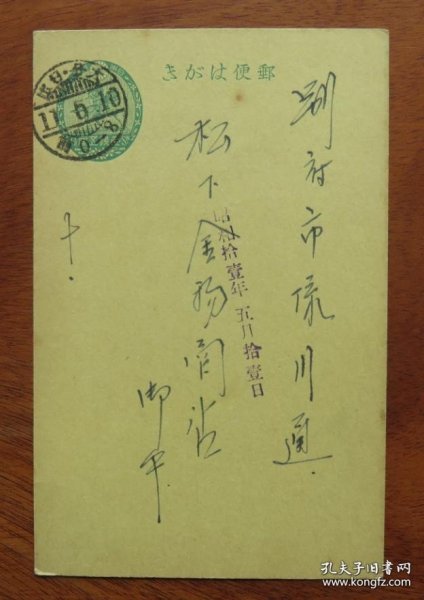 郵便はがき
11.6.10
別府市流川通
松下金物商店
御中
昭和拾壹年五月拾壹日
十.
孔夫子旧书网
www.kongfz.com